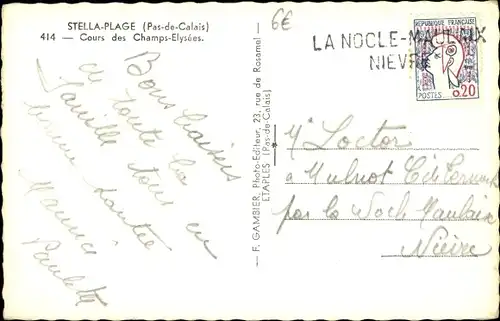 STELLA-PLAGE (Pas-de-Calais)
414 — Cours des Champs-Elysées.
6€
LA NOCLE-MAULAIX
NIEVRE
REPUBLIQUE FRANÇAISE
POSTES 0,20
Bons baisers
de toute la
famille tous en
bonne santée
Maurice
Paulette
— F. GAMBIER, Photo-Editeur, 23, rue de Rosamel
ETAPLES (Pas-de-Calais)
Mr Loctor
à Mulnot
par la Nocle Maulaix
Nièvre